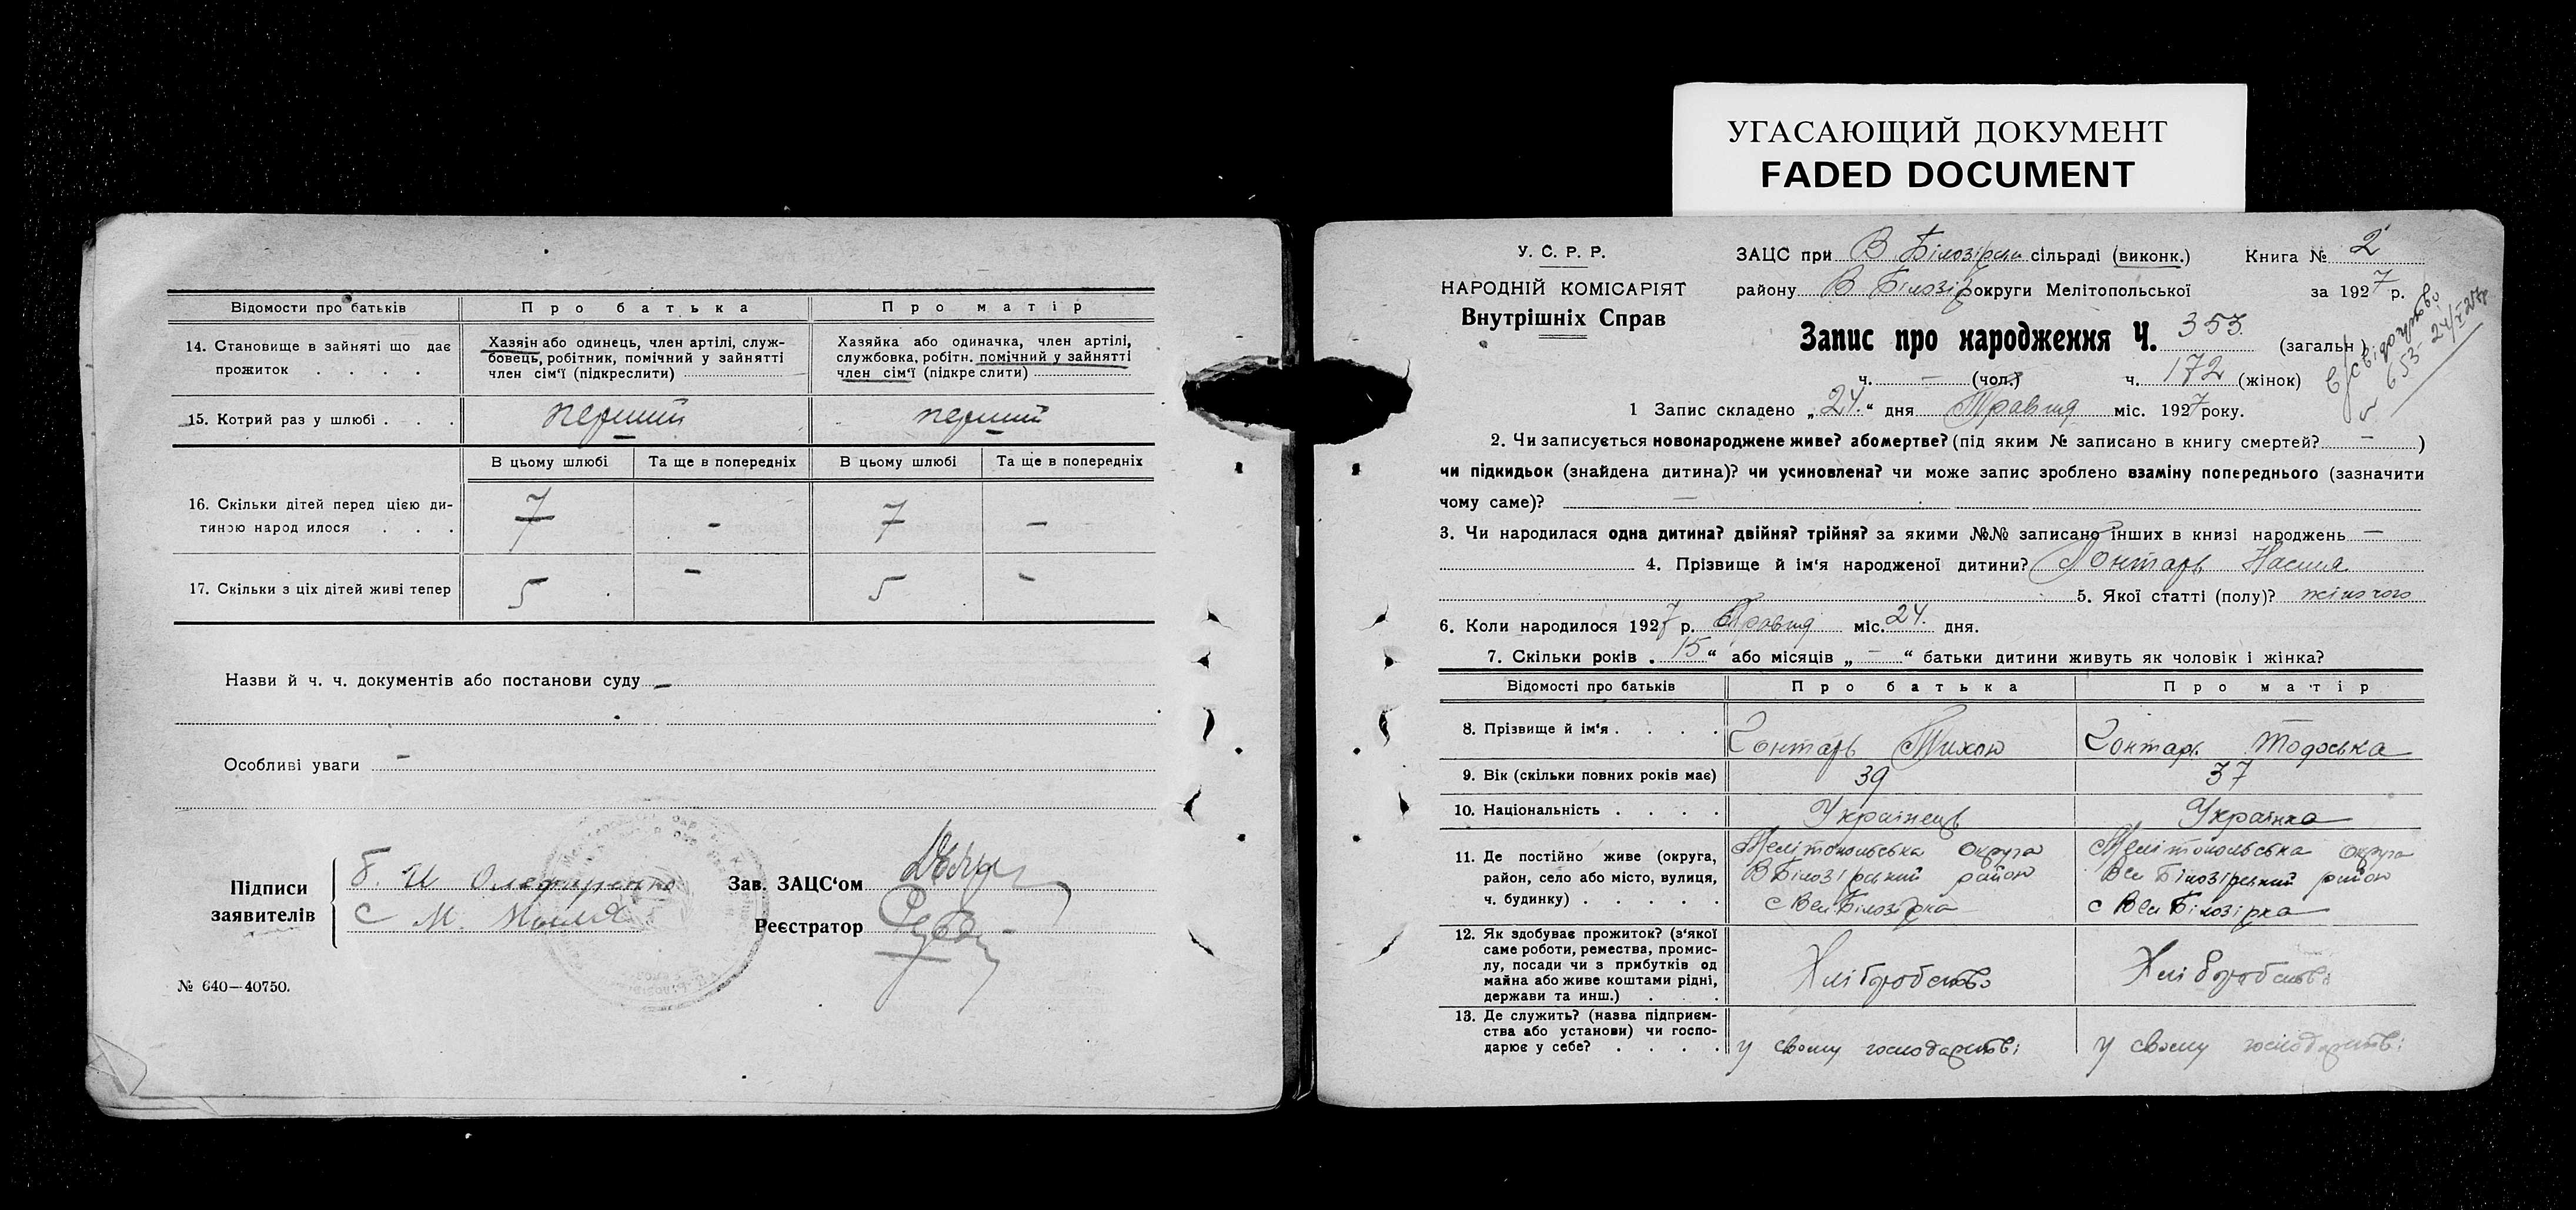 УГАСАЮЩИЙ ДОКУМЕНТ
FADED DOCUMENT
Відомости про батьків
Про батька
Про матір
14. Становище в зайняті що дає прожиток . . . .
Хазяін або одинець, член артілі, служ-
бовець, робітник, помічний у зайнятті
член сім'ї (підкреслити)
Хазяйка або одиначка, член артілі,
службовка, робітн. помічний у зайнятті
член сім'ї (підкре слити)
15. Котрий раз у шлюбі . . .
перший
перший
В цьому шлюбі
Та ще в попередніх
В цьому шлюбі
Та ще в попередніх
16. Скільки дітей перед цією ди-
тиною народ илося . . .
7 - 7 -
17. Скільки з ціх дітей живі тепер
5 - 5 -
Назви й ч. ч. документів або постанови суду -
Особливі уваги -
Підписи
заявителів
Зав. ЗАЦС'ом
Реєстратор
№ 640—40750.
У. С. Р. Р.
НАРОДНІЙ КОМІСАРІЯТ
Внутрішніх Справ
ЗАЦС при В Білозірськ сільраді (виконк.) Книга № 2
району В Білозір округи Мелітопольської за 1927 р.
Запис про народження Ч. 353 (загальн.)
ч. — (чол.) ч. 172 (жінок)
1 Запис складено „24.“ дня Травня міс. 1927 року.
2. Чи записується новонароджене живе? або мертве? (під яким № записано в книгу смертей? — )
чи підкидьок (знайдена дитина)? чи усиновлена? чи може запис зроблено взаміну попереднього (зазначити
чому саме)? —
3. Чи народилася одна дитина? двійня? трійня? за якими №№ записано інших в книзі народжень —
4. Прізвище й ім'я народженої дитини? Гонтарь Настя
5. Якої статті (полу)? жіночого
6. Коли народилося 1927 р. Травня міс. 24. дня.
7. Скільки років „15“ або місяців „—“ батьки дитини живуть як чоловік і жінка?
Відомості про батьків
Про батька
Про матір
8. Прізвище й ім'я . . . .
Гонтарь Тихон
Гонтарь Тодоська
9. Вік (скільки повних років має)
39
37
10. Національність . . . .
Українець
Українка
11. Де постійно живе (округа,
район, село або місто, вулиця,
ч. будинку) . . . . .
Мелітопольська округа
В Білозірський район
с Вел Білозірка
Мелітопольська округа
Вел Білозірський район
с Вел Білозірка
12. Як здобуває прожиток? (з'якої
саме роботи, ремества, промис-
лу, посади чи з прибутків од
майна або живе коштами рідні,
держави та инш.) . . .
Хліборобство
Хліборобство
13. Де служить? (назва підприєм-
ства або установи) чи госпо-
дарює у себе? . . . .
у своєму господарстві
у своєму господарстві